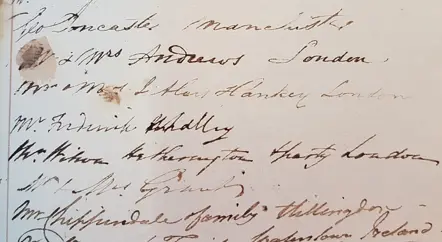 Geo Loncaster Manchester
Mr & Mrs Andrews London
Mr & Mrs Hankey London
Mr Frederick Hadley
Mr Wilson Hetherington & party London
Mr & Mrs Grant
Mr Chippendale & family Hillingdon
Ireland